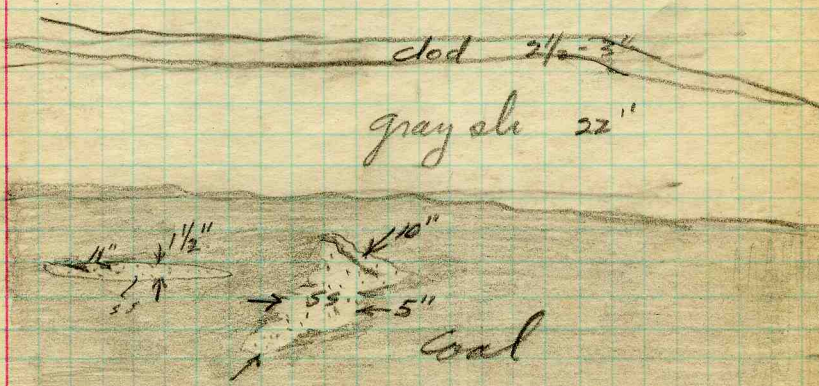 clod 2½-3"
gray sh 22"
1½"
11"
ss
10"
ss
5"
coal